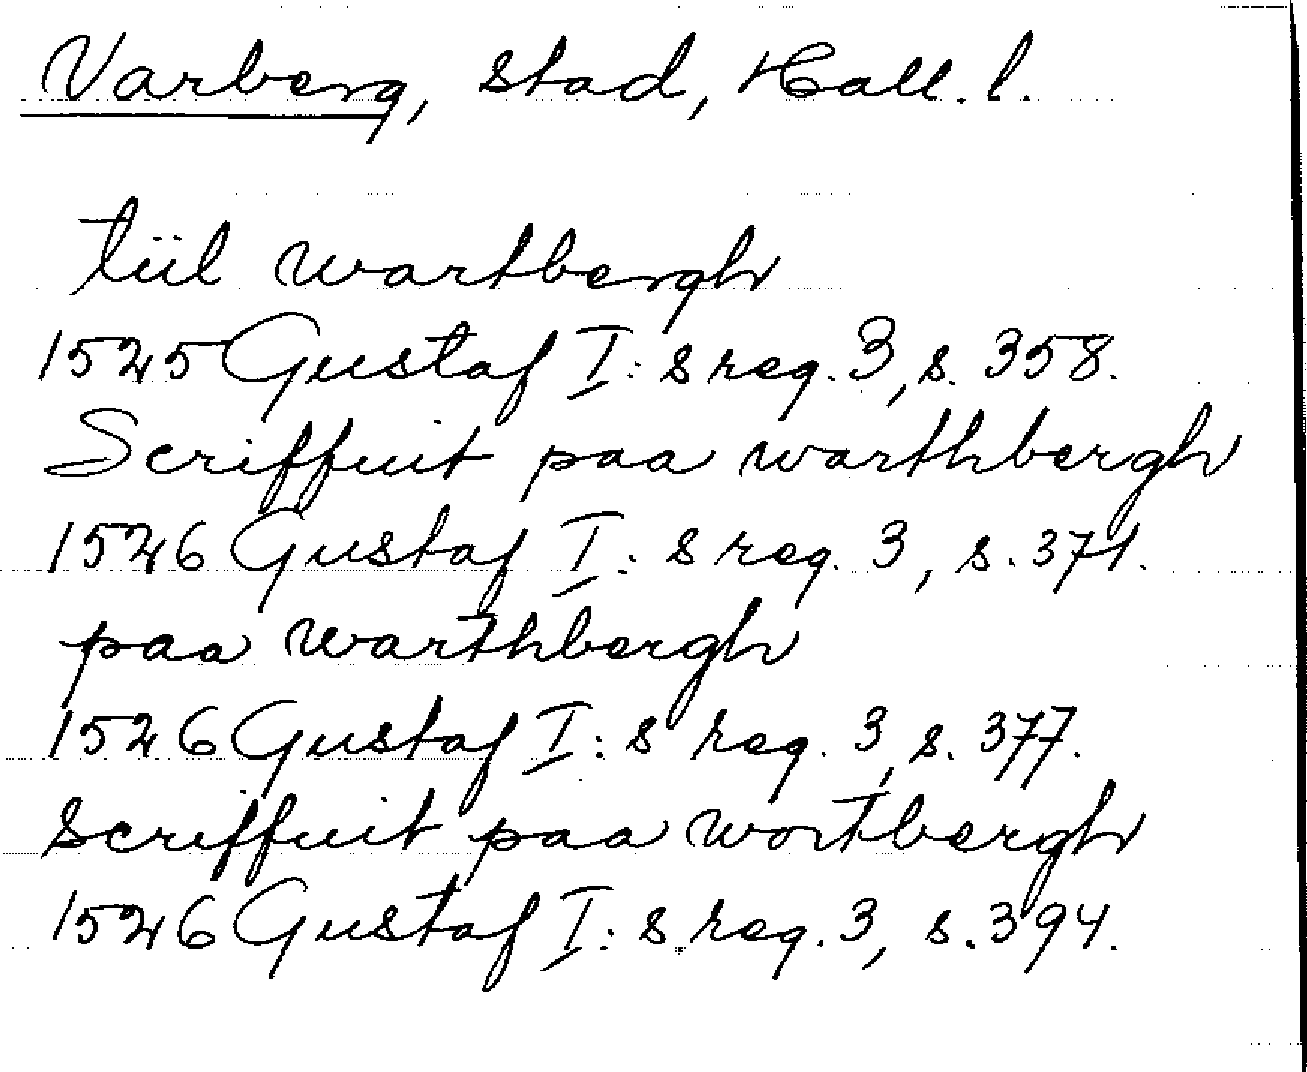 Varberg, stad, Hall. l.
tiil wartbergh
1525 Gustaf I:s reg. 3, s. 358.
Scriffuit paa warthbergh
1526 Gustaf I:s reg. 3, s. 371.
paa warthbergh
1526 Gustaf I:s reg. 3, s. 377.
scriffuit paa wortbergh
1526 Gustaf I:s reg. 3, s. 394.